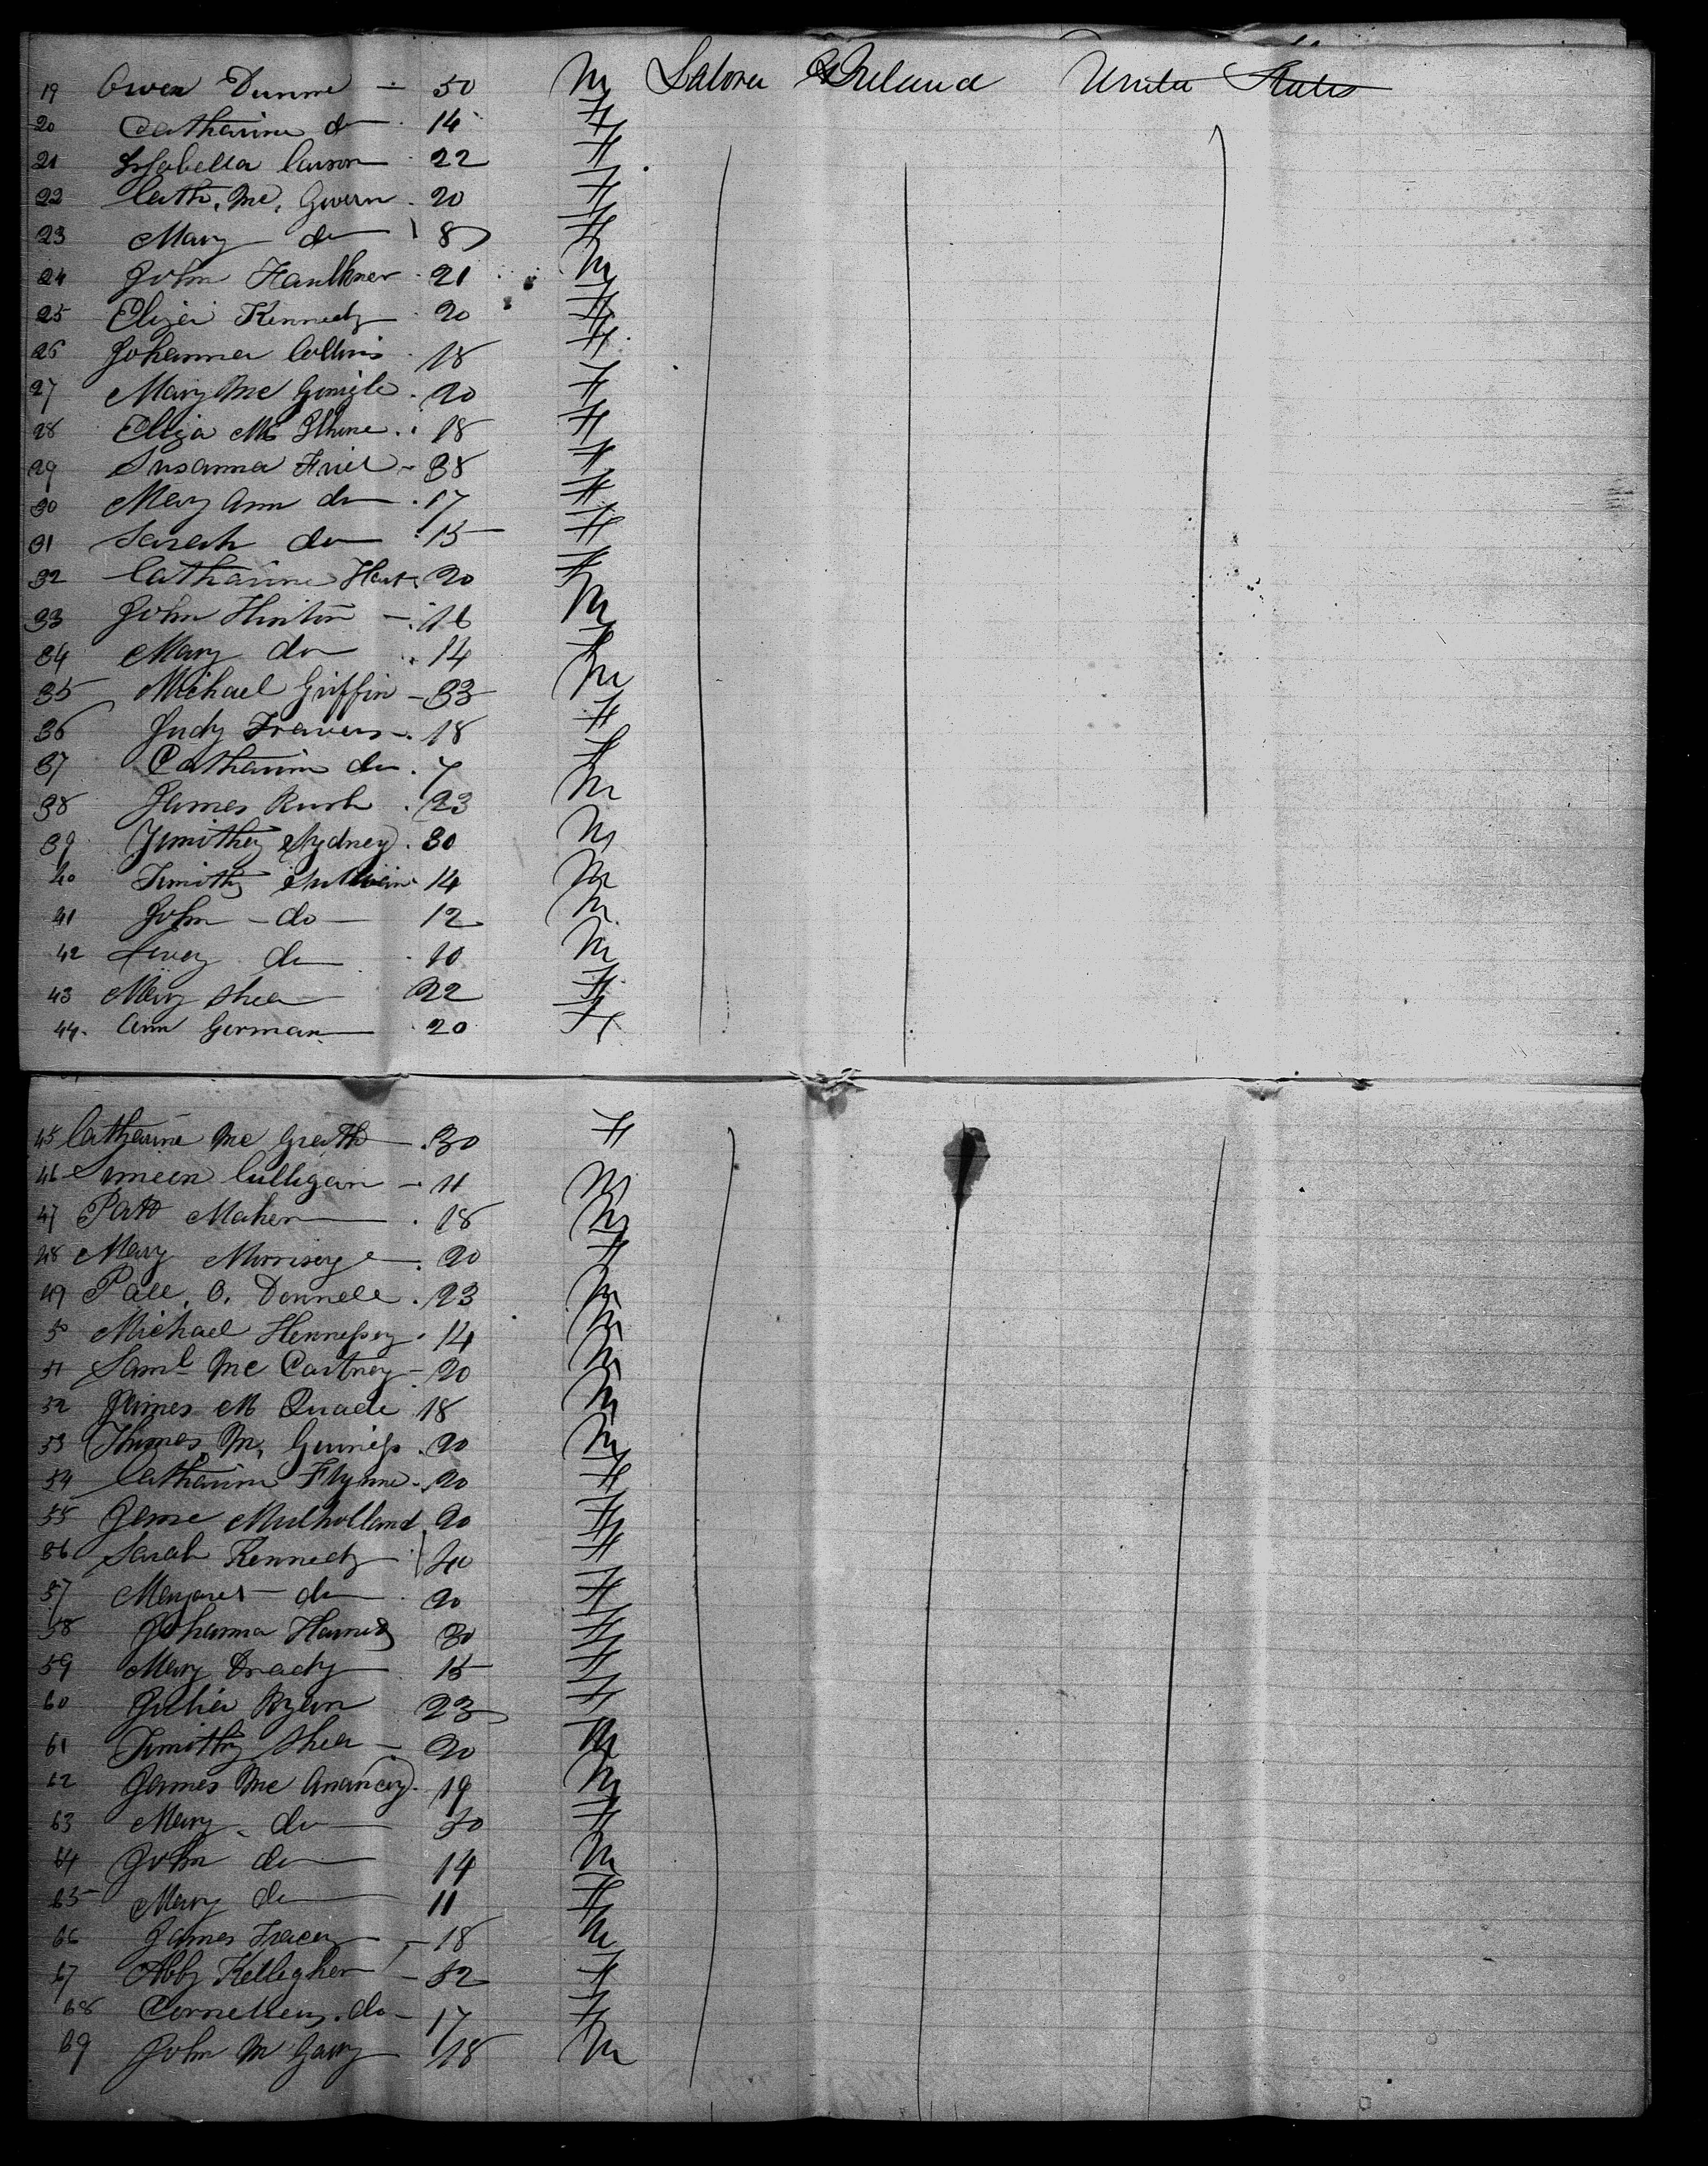 19 Owen Dunne - 50 M Labora Ireland United States
20 Catharine do 14 F
21 Issabella Carson 22 F
22 Cath. Mc. Gwern 20 F
23 Mary do 8 F
24 John Faulkner 21 M
25 Eliza Kennedy 20 F
26 Johanna Collins 18 F
27 Mary Mc Gonigle 20 F
28 Eliza Mc Ilhone 18 F
29 Susanna Friel - 38 F
30 Mary Ann do 17 F
31 Sarah do 15 F
32 Catharine Hart 20 F
33 John Hinton - 16 M
34 Mary do 14 F
35 Michael Griffin - 33 M
36 Judy Travers - 18 F
37 Catharine do 7 F
38 James Rush 23 M
39 Timithy Sydney 30 M
40 Timithy Sullivin 14 M
41 John - do - 12 M
42 do 10 M
43 Mary Shea 22 F
44. Ann Gorman 20 F
45 Catharine Mc Grath 30 F
46 Simeon Culligan - 11 M
47 Patt Maher 18 M
48 Mary Morrisey 20 F
49 O. Donnell 23 M
50 Michael Hennessey 14 M
51 Saml Mc Cartney - 20 M
52 James M Quade 18 M
53 Thomas M. Guiness 20 M
54 Catharine Flynne 20 F
55 Jane Mulholland 20 F
56 Sarah Kennedy 40 F
57 Margaret do 20 F
58 Johanna 30 F
59 Mary Brady 15 F
60 Julia Ryan 23 F
61 Timithy Shea - 20 M
62 James Mc Anancey 19 M
63 Mary do 50 F
64 John do 14 M
65 Mary do 11 F
66 James Tracey - 18 M
67 Abby Kellegher - 52 F
68 Cornelleus do - 17 F
69 John M Garry 18 M